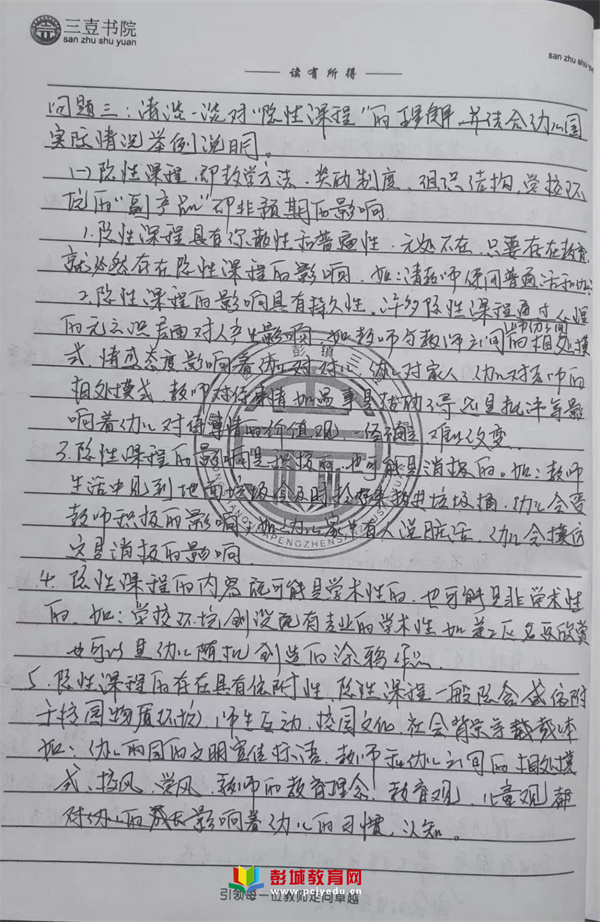 三壹书院
san zhu shu yuan
san zhu shu
读有所得
问题三：请谈一谈对“隐性课程”的理解，并结合幼儿园
实际情况举例说明。
(一)隐性课程，即教学方法、奖励制度、组织结构、学校环
境的“副产品”即非预期的影响
1.隐性课程具有弥散性和普遍性，无处不在，只要存在教育，
就必然存在隐性课程的影响，如：请教师使用普通话和幼
2.隐性课程的影响具有持久性。许多隐性课程通过心理
的无意识层面对人产生影响，如教师与教师之间的相处模
师幼间
式，情感态度影响着幼儿对幼儿，幼儿对家人，幼儿对老师的
相处模式，教师对待事情如遇事是鼓励 还是批评等影
响着幼儿对待事情的价值观，一经确定，难以改变。
3.隐性课程的影响是积极的，也可能是消极的。如：教师
生活中见到地面垃圾会及时 扔进垃圾桶，幼儿会受
教师积极的影响，如幼儿家中有人说脏话，幼儿会模仿
这是消极的影响
4.隐性课程的内容既可能是学术性的，也可能是非学术性
的，如：学校环境创设既有专业的学术性如美工区名画欣赏
也可以是幼儿随机创造的涂鸦作品
5.隐性课程的存在具有依附性，隐性课程一般隐含或依附
于校园物质环境，师生互动，校园文化，社会背景等载体
如：幼儿园的文明宣传标语，教师和幼儿之间的相处模
式、校风、学风、教师的教育理念、教育观、儿童观都
对幼儿的成长影响着幼儿的习惯，认知。
彭城教育网
www.pcjyedu.com
引领每一位教师走向卓越